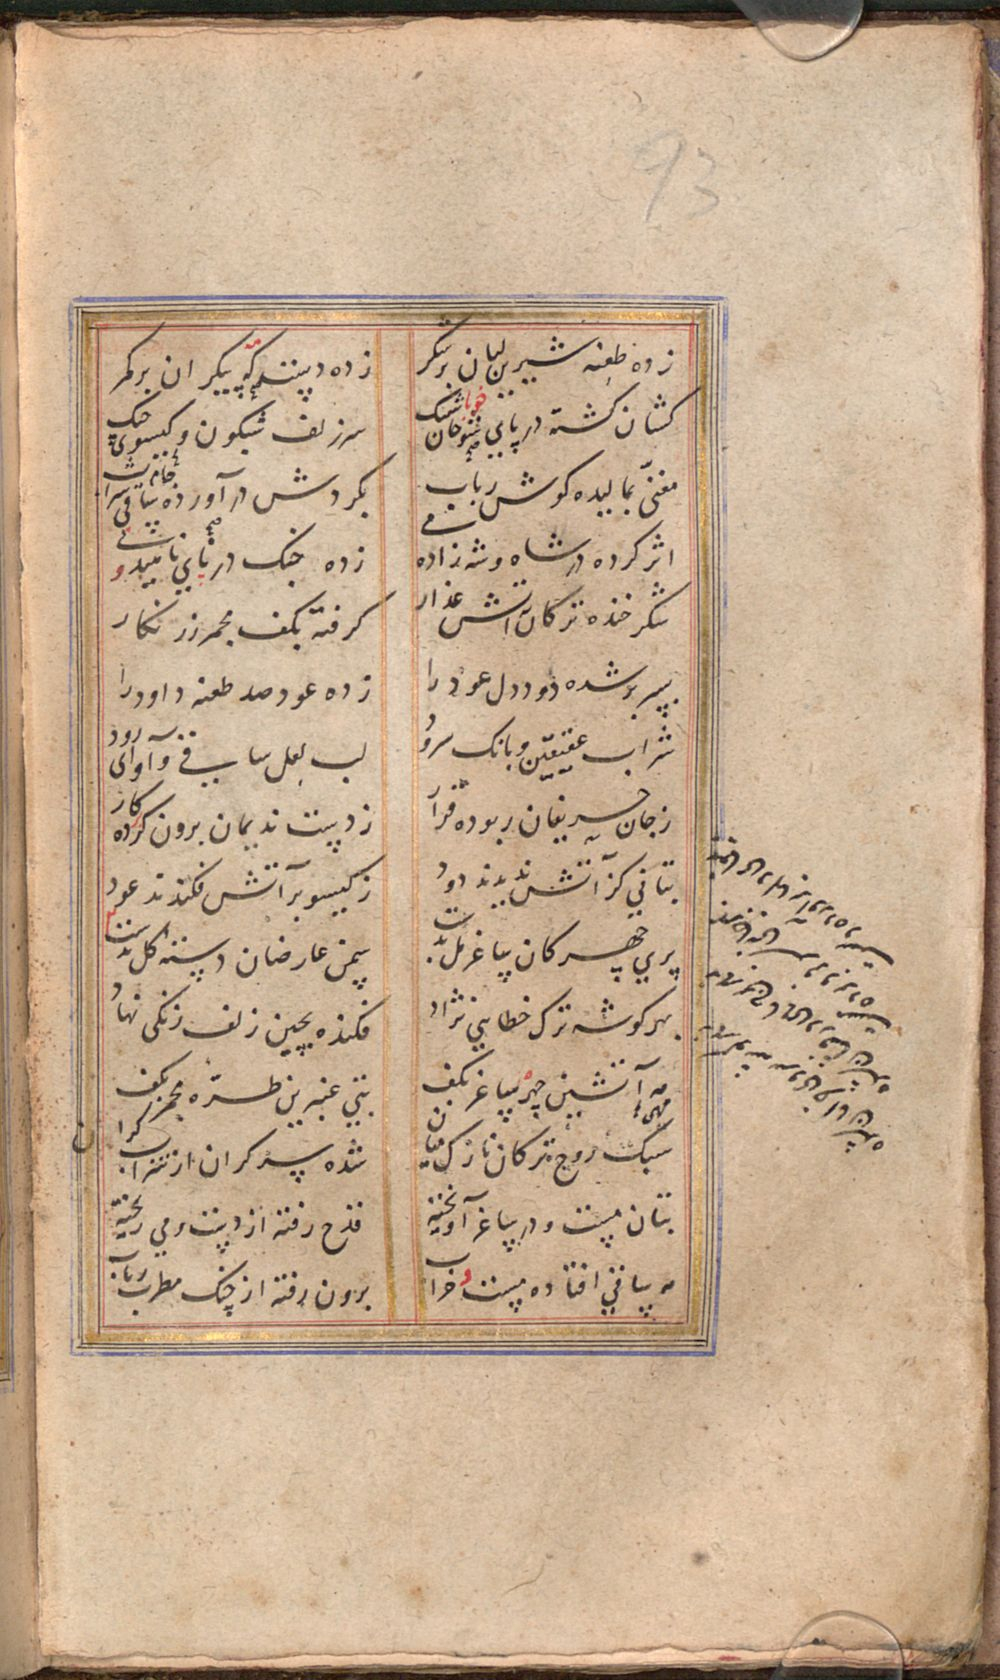 93
زده طعنه شیرین لبان بر شکر زده دست مه پیکران بر کمر
کشان گشته در پای خوبان شنک سر زلف شبگون و گیسوی چنک
مغنی بمالیده گوش رباب بگردش در آورده ساقی شراب
اثر کرده در شاه و شهزاده می زده چنک در نای ناهید و نی
شکر خنده ترکان آتش عذار گرفته بکف مجمر زرنگار
بسر بر شده دود دل عود را زده عود صد طعنه داود را
شراب عقیقین و بانک سرود لب لعل ساقی و آوای رود
ز جان حریفان ربوده قرار ز دست ندیمان برون کرده کار
بتانی کز آتش ندیدند دود ز گیسو بر آتش فکندند عود
پری چهرکان ساغر مل بدست سمن عارضان دسته گل بدست
بهر گوشه ترک خطایی نژاد فکنده بچین زلف زنگی نهاد
مه آتشین چهره ساغر بکف بتی عنبرین طره مجمر بکف
سبک روح ترکان نازک میان شده سر گران از شراب گران
بتان مست و در ساغر آویخته قدح رفته از دست و می ریخته
مه ساقی افتاده مست و خراب برون رفته از چنک مطرب رباب